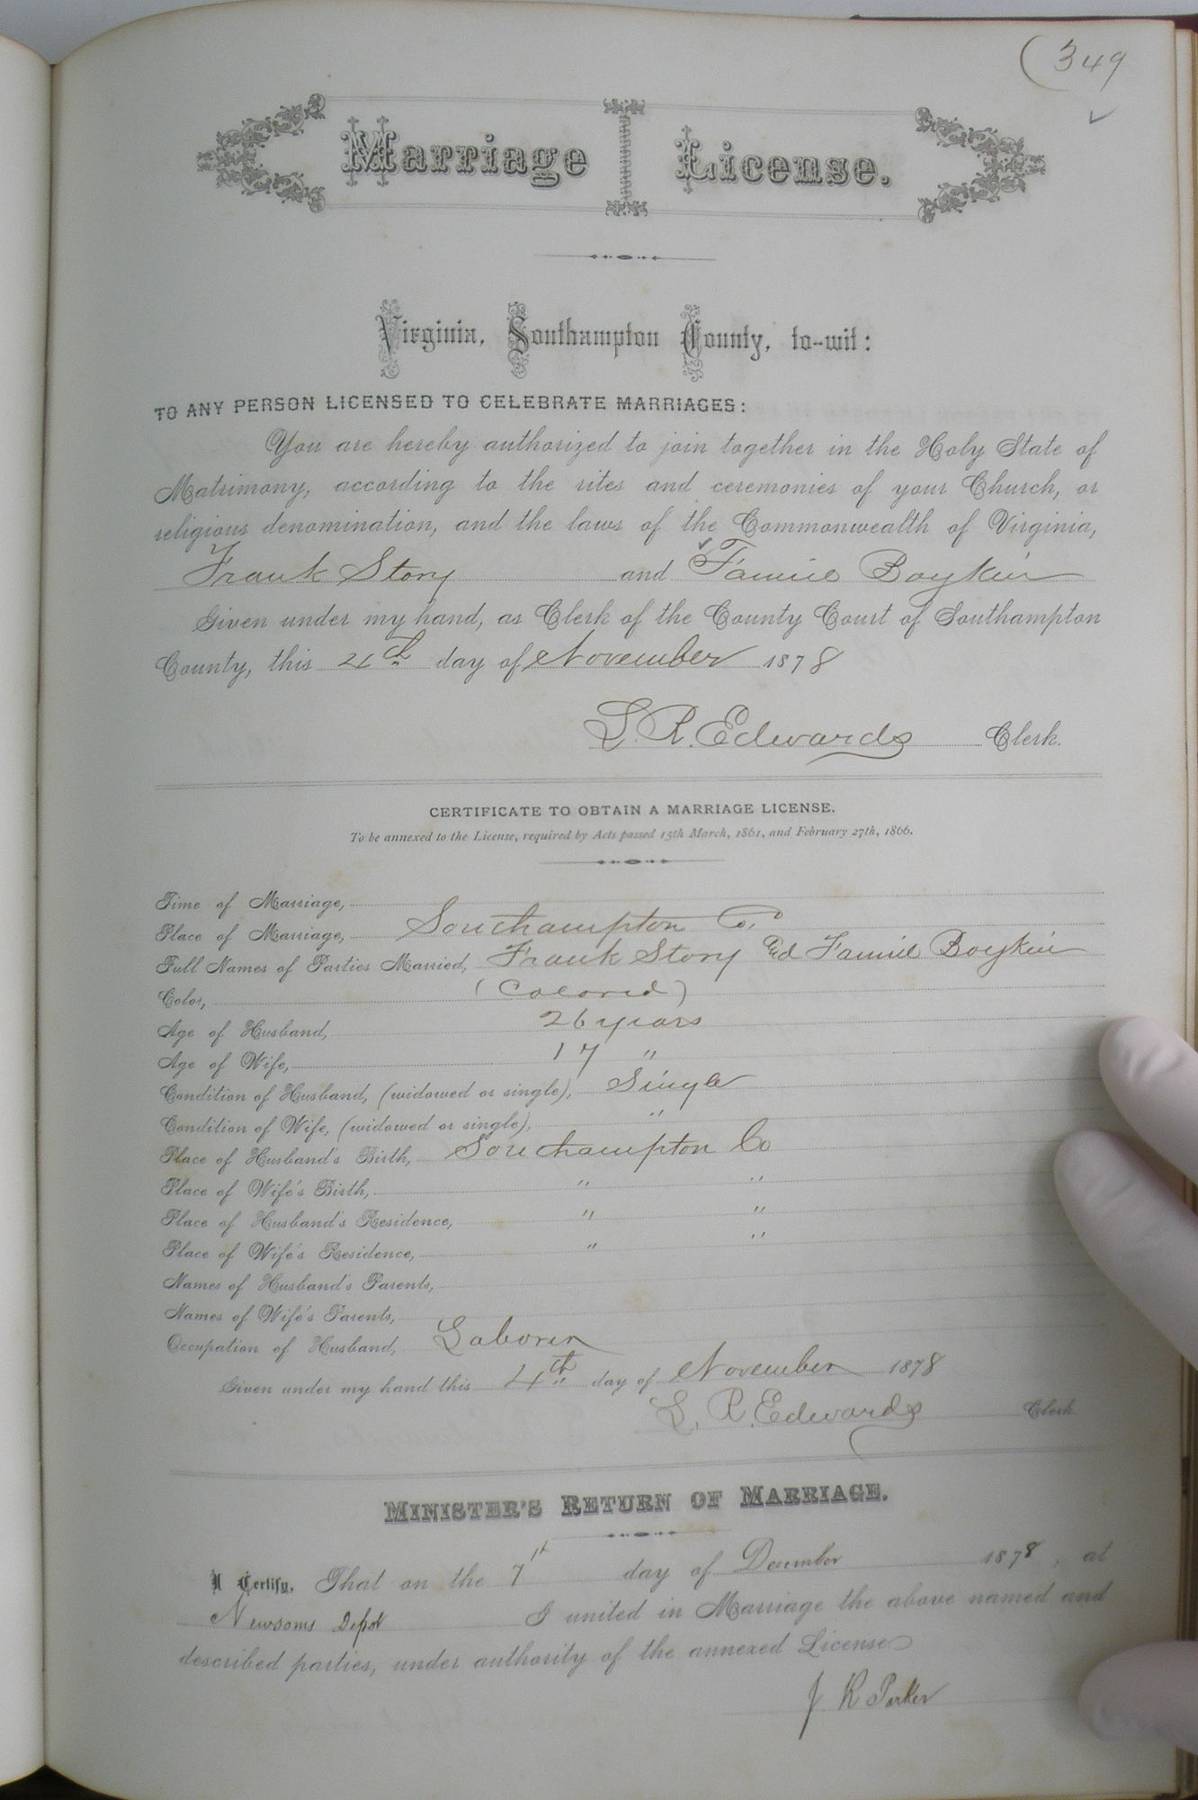 (349
Marriage License.
Virginia, Southampton County, to-wit:
TO ANY PERSON LICENSED TO CELEBRATE MARRIAGES:
You are hereby authorized to join together in the Holy State of
Matrimony, according to the rites and ceremonies of your Church, or
religious denomination, and the laws of the Commonwealth of Virginia,
Frank Story and Fannie Boykin
Given under my hand, as Clerk of the County Court of Southampton
County, this 4th day of November 1878
L. R. Edwards Clerk.
CERTIFICATE TO OBTAIN A MARRIAGE LICENSE.
To be annexed to the License, required by Acts passed 15th March, 1861, and February 27th, 1866.
Time of Marriage,
Place of Marriage, Southampton Co.
Full Names of Parties Married, Frank Story & Fannie Boykin
Color, (Colored)
Age of Husband, 26 years
Age of Wife, 17 "
Condition of Husband, (widowed or single), Single
Condition of Wife, (widowed or single), "
Place of Husband's Birth, Southampton Co
Place of Wife's Birth, " "
Place of Husband's Residence, " "
Place of Wife's Residence, " "
Names of Husband's Parents,
Names of Wife's Parents,
Occupation of Husband, Laborer
Given under my hand this 4th day of November 1878
L. R. Edwards Clerk
MINISTER'S RETURN OF MARRIAGE.
I Certify, That on the 7th day of December 1878, at
Newsoms Depot I united in Marriage the above named and
described parties, under authority of the annexed License
J R Parker